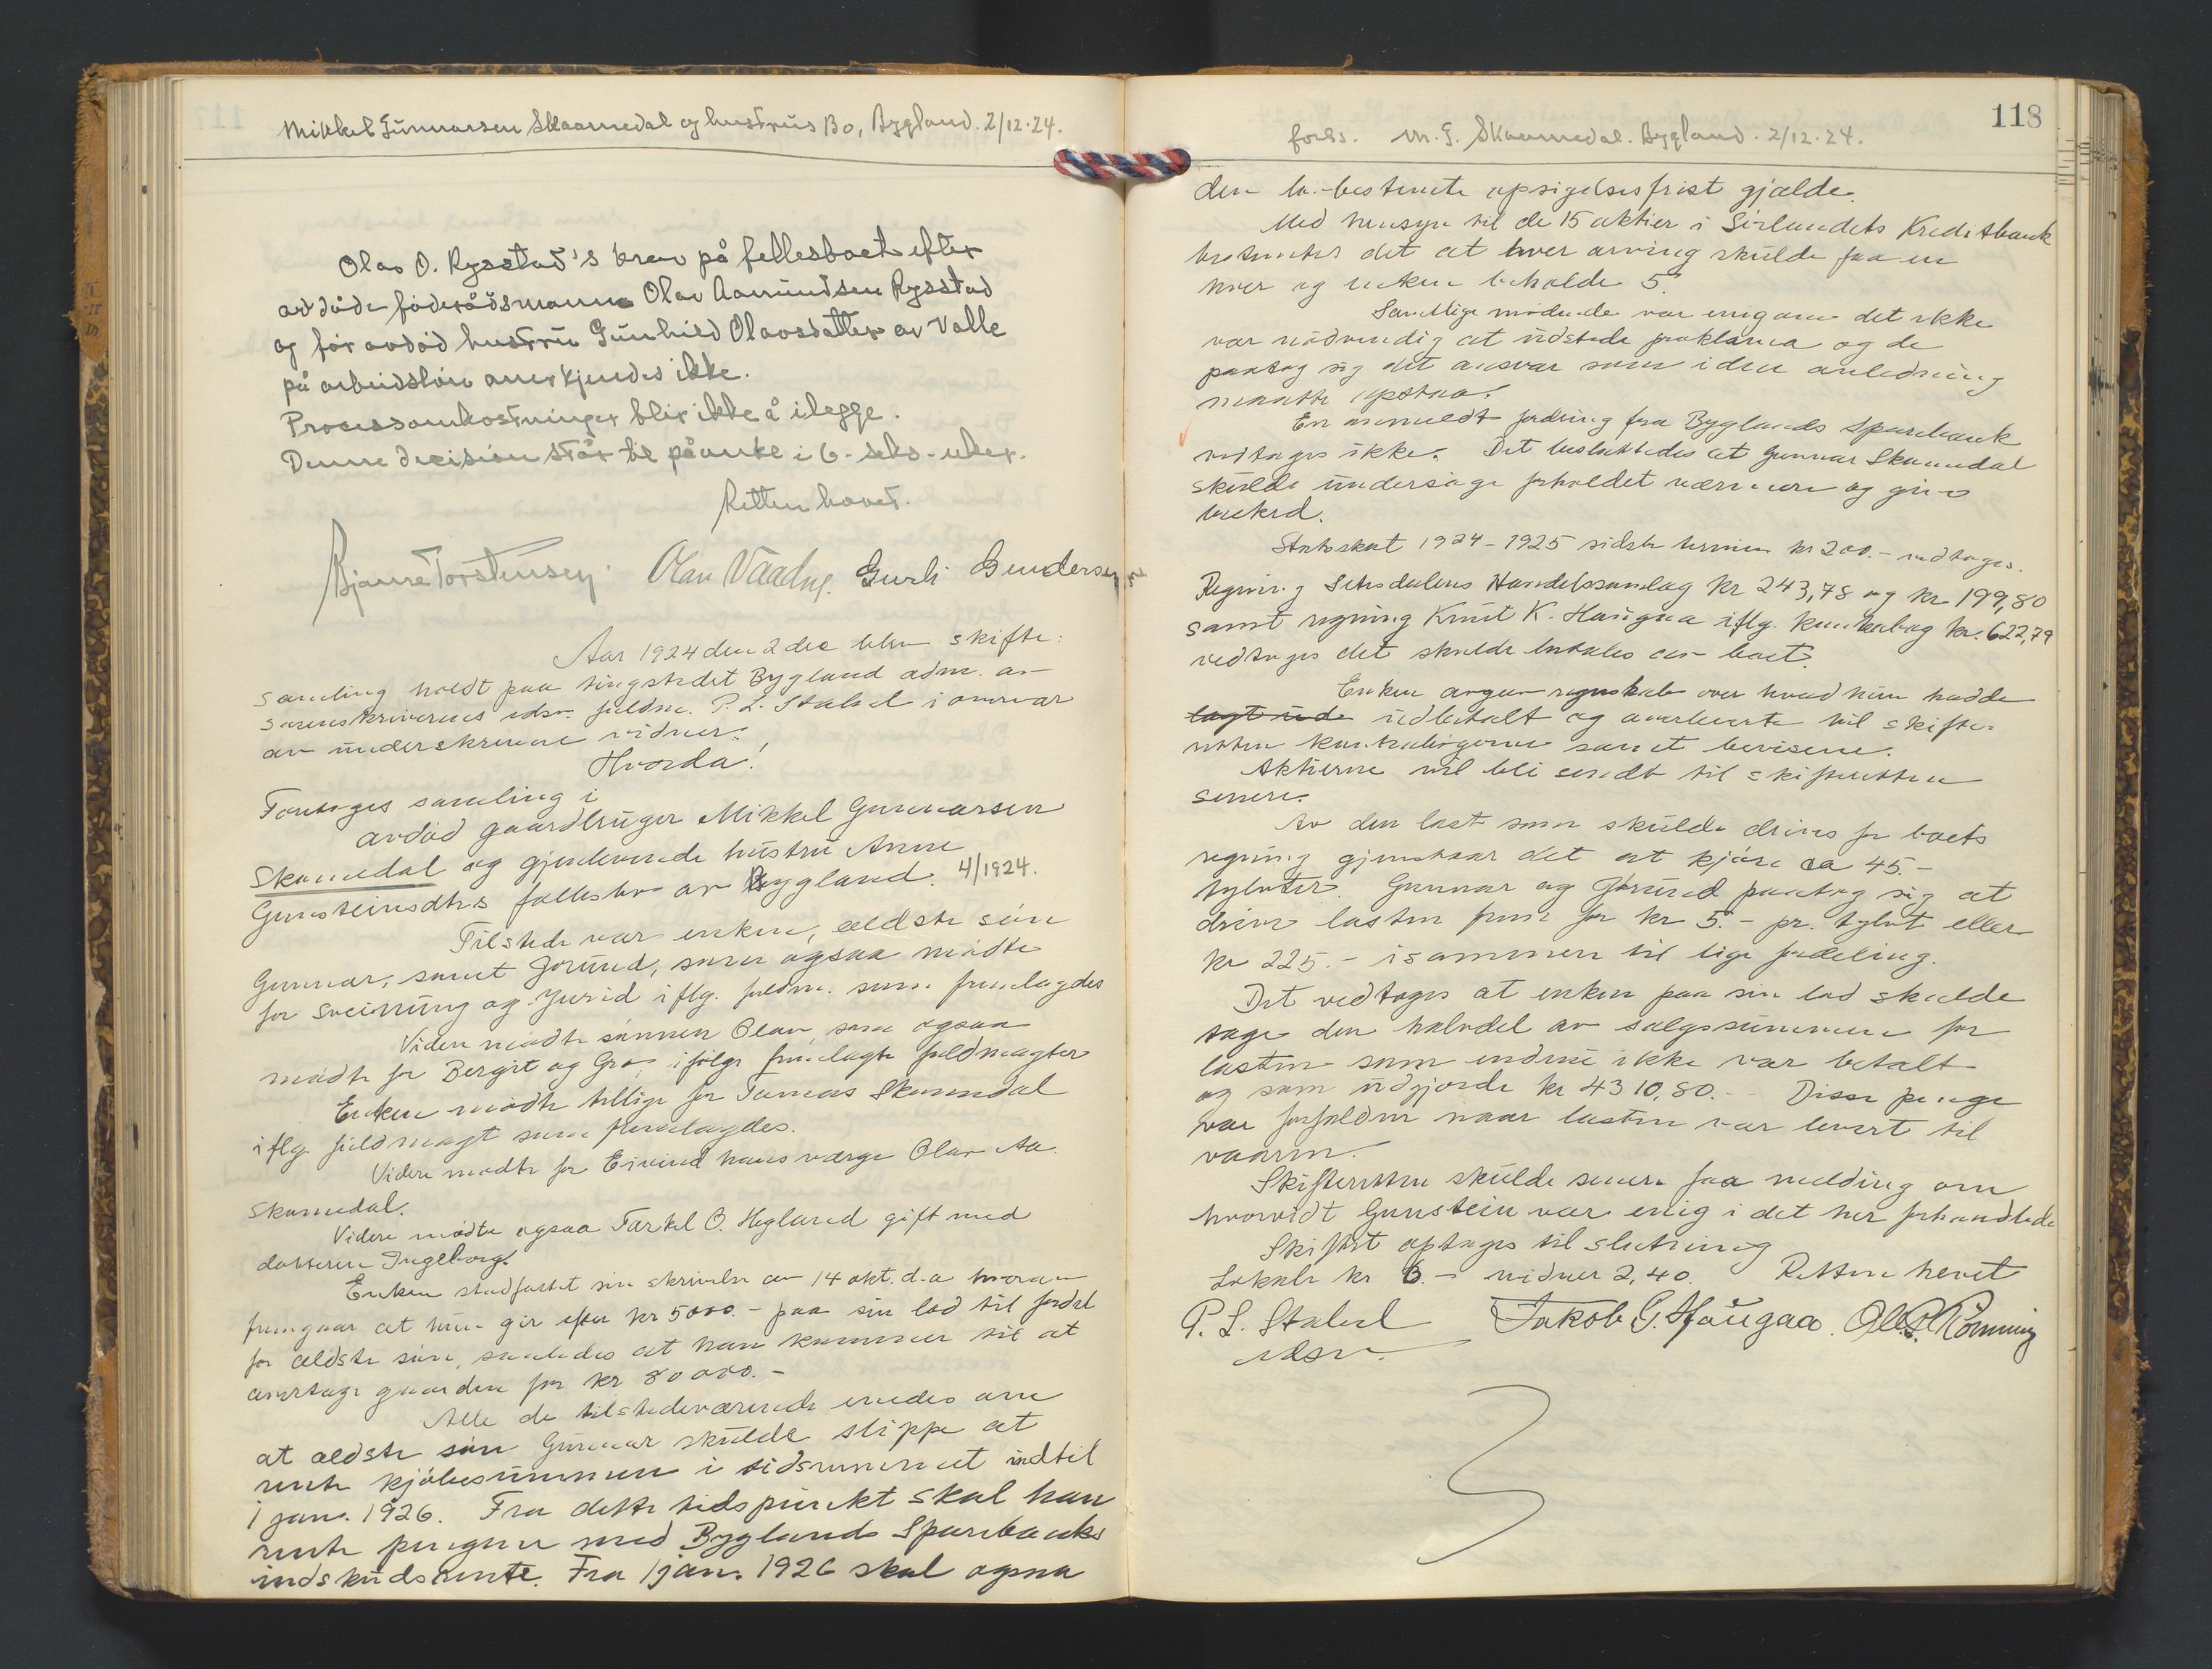 Mikkel Gunnarsen Skaamedal og hustrus Bo, Bygland. 2/12.24.
Olav O. Rysstad's krav på fellesboet efter
avdøde føderådsmann Olav Aamundsen Rysstad
og før avdød hustru Gunhild Olavsdatter av Valle
på arbeidsløn anerkjendes ikke.
Procesomkostninger blir ikke å ilegge.
Denne decision står til påanke i 6 - seks - uker.
Retten hævet.
Bjarne Torstensen. Olav Vaadne. Gurli Gundersen
Aar 1924 den 2 dec blev skifte-
samling holdt paa tingstedet Bygland adm. av
sorenskriverens edsv. fuldm. P. L. Stabel i overvær
av underskrevne vidner:
Hvorda!
Foretages samling i
avdød gaardbruger Mikkel Gunnarsen
Skomedal og gjenlevende hustru Anne
Gunsteinsdtrs fællesbo av Bygland. 4/1924.
Tilstede var enken, ældste søn
Gunnar, samt Jorund, som ogsaa mødte
for Sveinung og Jurid iflg. fuldm. som fremlagdes
Videre mødte sønnen Olav, som ogsaa
mødte for Bergit og Gro, ifølge fremlagte fuldmagter
Enken mødte tillige for Tomas Skomedal
iflg. fuldmagt som fremlagdes.
Videre mødte for Eivind hans værge Olav Aa.
Skomedal.
Videre mødte ogsaa Tarkel O. Hegland gift med
datteren Ingeborg.
Enken stadfæstet sin skrivelse av 14 okt. d.a. hvorav
fremgaar at hun gir efter kr 5000.- paa sin lod til fordel
for ældste søn, saaledes at han kommer til at
overtage gaarden for kr 80000.-
Alle de tilstedeværende enedes om
at ældste søn Gunnar skulde slippe at
rente kjøbesummen i tidsrummet indtil
1 jan. 1926. Fra dette tidspunkt skal han
rente pengene med Byglands Sparebanks
indskudsrente. Fra 1 jan. 1926 skal ogsaa
118
forts. M. G. Skaamedal. Bygland. 2/12.24.
den lovbestemte opsigelsesfrist gjælde.
Med hensyn til de 15 aktier i Sørlandets Kreditbank
bestemtes det at hver arving skulde faa en
hver og enken beholde 5.
Samtlige mødende var enig om det ikke
var nødvendig at udstede proklama og de
paatog sig det ansvar som i den anledning
maatte opstaa.
En anmeldt fordring fra Byglands Sparebank
vedtages ikke. Det besluttedes at Gunnar Skomedal
skulde undersøge forholdet nærmere og give
besked.
Statsskat 1924-1925 sidste termin kr 200.- vedtages.
Regning Setesdalens Handelssamlag kr 243,78 og kr 199,80
samt regning Knut K. Haugaa iflg. kontrabog kr. 622,79
vedtages det skulde betales av boet.
Enken avgav regnskab over hvad hun hadde
lagt ude udbetalt og overleverte til skifte-
retten kontrabøgerne samt bevisene.
Aktierne vil bli sendt til skifteretten
senere.
Av den last som skulde drives for boets
regning gjenstaar det at kjøre ca 45.-
tylvter. Gunnar og Jorund paatog sig at
drive lasten frem for kr 5.- pr. tylvt eller
kr 225.- isammen til lige fordeling.
Det vedtages at enken paa sin lod skulde
tage den halvdel av salgssummen for
lasten som endnu ikke var betalt
og som udgjorde kr 4310,80.- Disse penge
var forfalden naar lasten var levert til
vaaren.
Skifteretten skulde senere faa melding om
hvorvidt Gunstein var enig i det her forhandlede
Skiftet optages til slutning
Lokale kr 6.- vidner 2,40. Retten hevet
P. L. Stabel Jakob G. Haugaa. Ole P. Rønning
edsv.